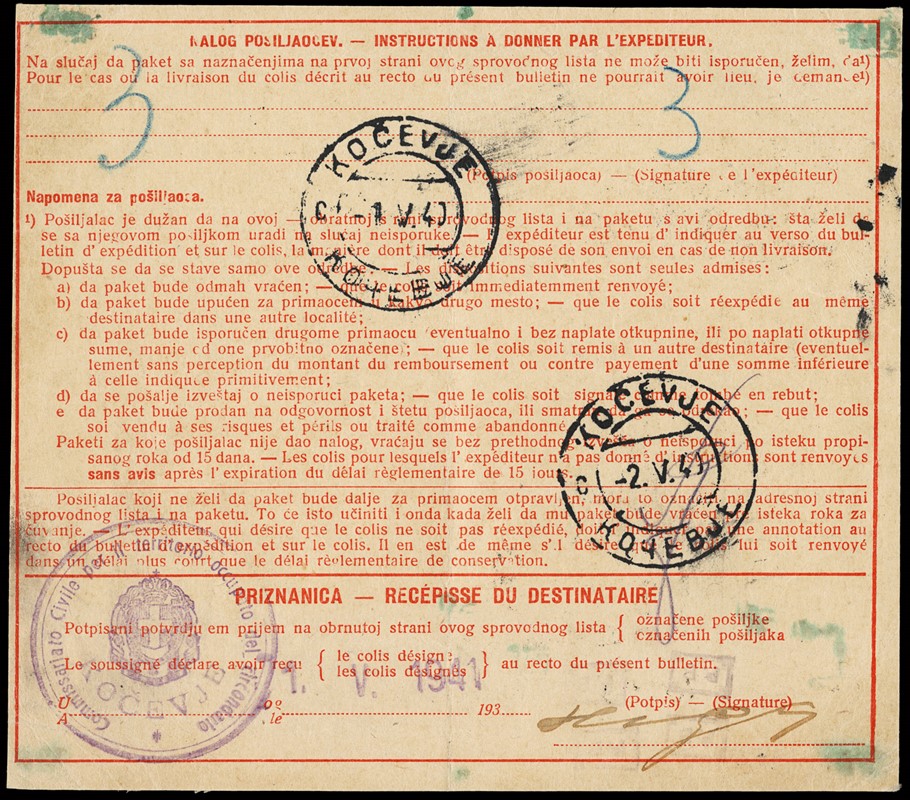 NALOG POŠILJAOCEV. — INSTRUCTIONS À DONNER PAR L'EXPÉDITEUR.
Na slučaj da paket sa naznačenjima na prvoj strani ovog sprovodnog lista ne može biti isporučen, želim, da¹)
Pour le cas où la livraison du colis décrit au recto du présent bulletin ne pourrait avoir lieu, je demande¹)
3 3
(Potpis pošiljaoca) — (Signature de l'expéditeur)
KOČEVJE
-1.V.41
КОЧЕВЈЕ
Napomena za pošiljaoca.
¹) Pošiljalac je dužan da na ovoj — obratnoj strani sprovodnog lista i na paketu stavi odredbu: šta želi da
se sa njegovom pošiljkom uradi na slučaj neisporuke. — L'expéditeur est tenu d' indiquer au verso du bul-
letin d' expédition et sur le colis, la manière dont il doit être disposé de son envoi en cas de non livraison.
Dopušta se da se stave samo ove odredbe — Les dispositions suivantes sont seules admises:
a) da paket bude odmah vraćen; — que le colis soit immediatemment renvoyé;
b) da paket bude upućen za primaocem u kakvo drugo mesto; — que le colis soit réexpédié au même
destinataire dans une autre localité;
c) da paket bude isporučen drugome primaocu (eventualno i bez naplate otkupnine, ili po naplati otkupne
sume, manje od one prvobitno označene); — que le colis soit remis à un autre destinataire (eventuel-
lement sans perception du montant du remboursement ou contre payement d'une somme inférieure
à celle indiquée primitivement;
d) da se pošalje izveštaj o neisporuci paketa; — que le colis soit signalé comme tombé en rebut;
e da paket bude prodan na odgovornost i štetu pošiljaoca, ili smatran da ga je odrekao; — que le colis
soi vendu à ses risques et périls ou traité comme abandonné
Paketi za koje pošiljalac nije dao nalog, vraćaju se bez prethodnog izvešta o neisporuci po isteku propi-
sanog roka od 15 dana. — Les colis pour lesquels l'expéditeur n'a pas donné d'instructions sont renvoyés
sans avis après l'expiration du délai règlementaire de 15 jours.
KOČEVJE
-2.V.41
КОЧЕВЈЕ
Pošiljalac koji ne želi da paket bude dalje za primaocem otpravljen, mora to označiti na adresnoj strani
sprovodnog lista i na paketu. To će isto učiniti i onda kada želi da mu paket bude vraćen pre isteka roka za
čuvanje. — L'expéditeur qui désire que le colis ne soit pas réexpédié, doit une annotation au
recto du bulletin d'expédition et sur le colis. Il en est de même s'il désire que le colis lui soit renvoyé
dans un délai plus court que le délai règlementaire de conservation.
PRIZNANICA — RECÉPISSE DU DESTINATAIRE
Potpisani potvrdju em prijem na obrnutoj strani ovog sprovodnog lista { označene pošiljke
označenih pošiljaka
Le soussigné déclare avoir reçu { le colis désigné
les colis désignés } au recto du présent bulletin.
1. V. 1941
U og 193
A le
(Potpis) — (Signature)
Commissariato Civile per il territorio occupato del circondario
KOČEVJE